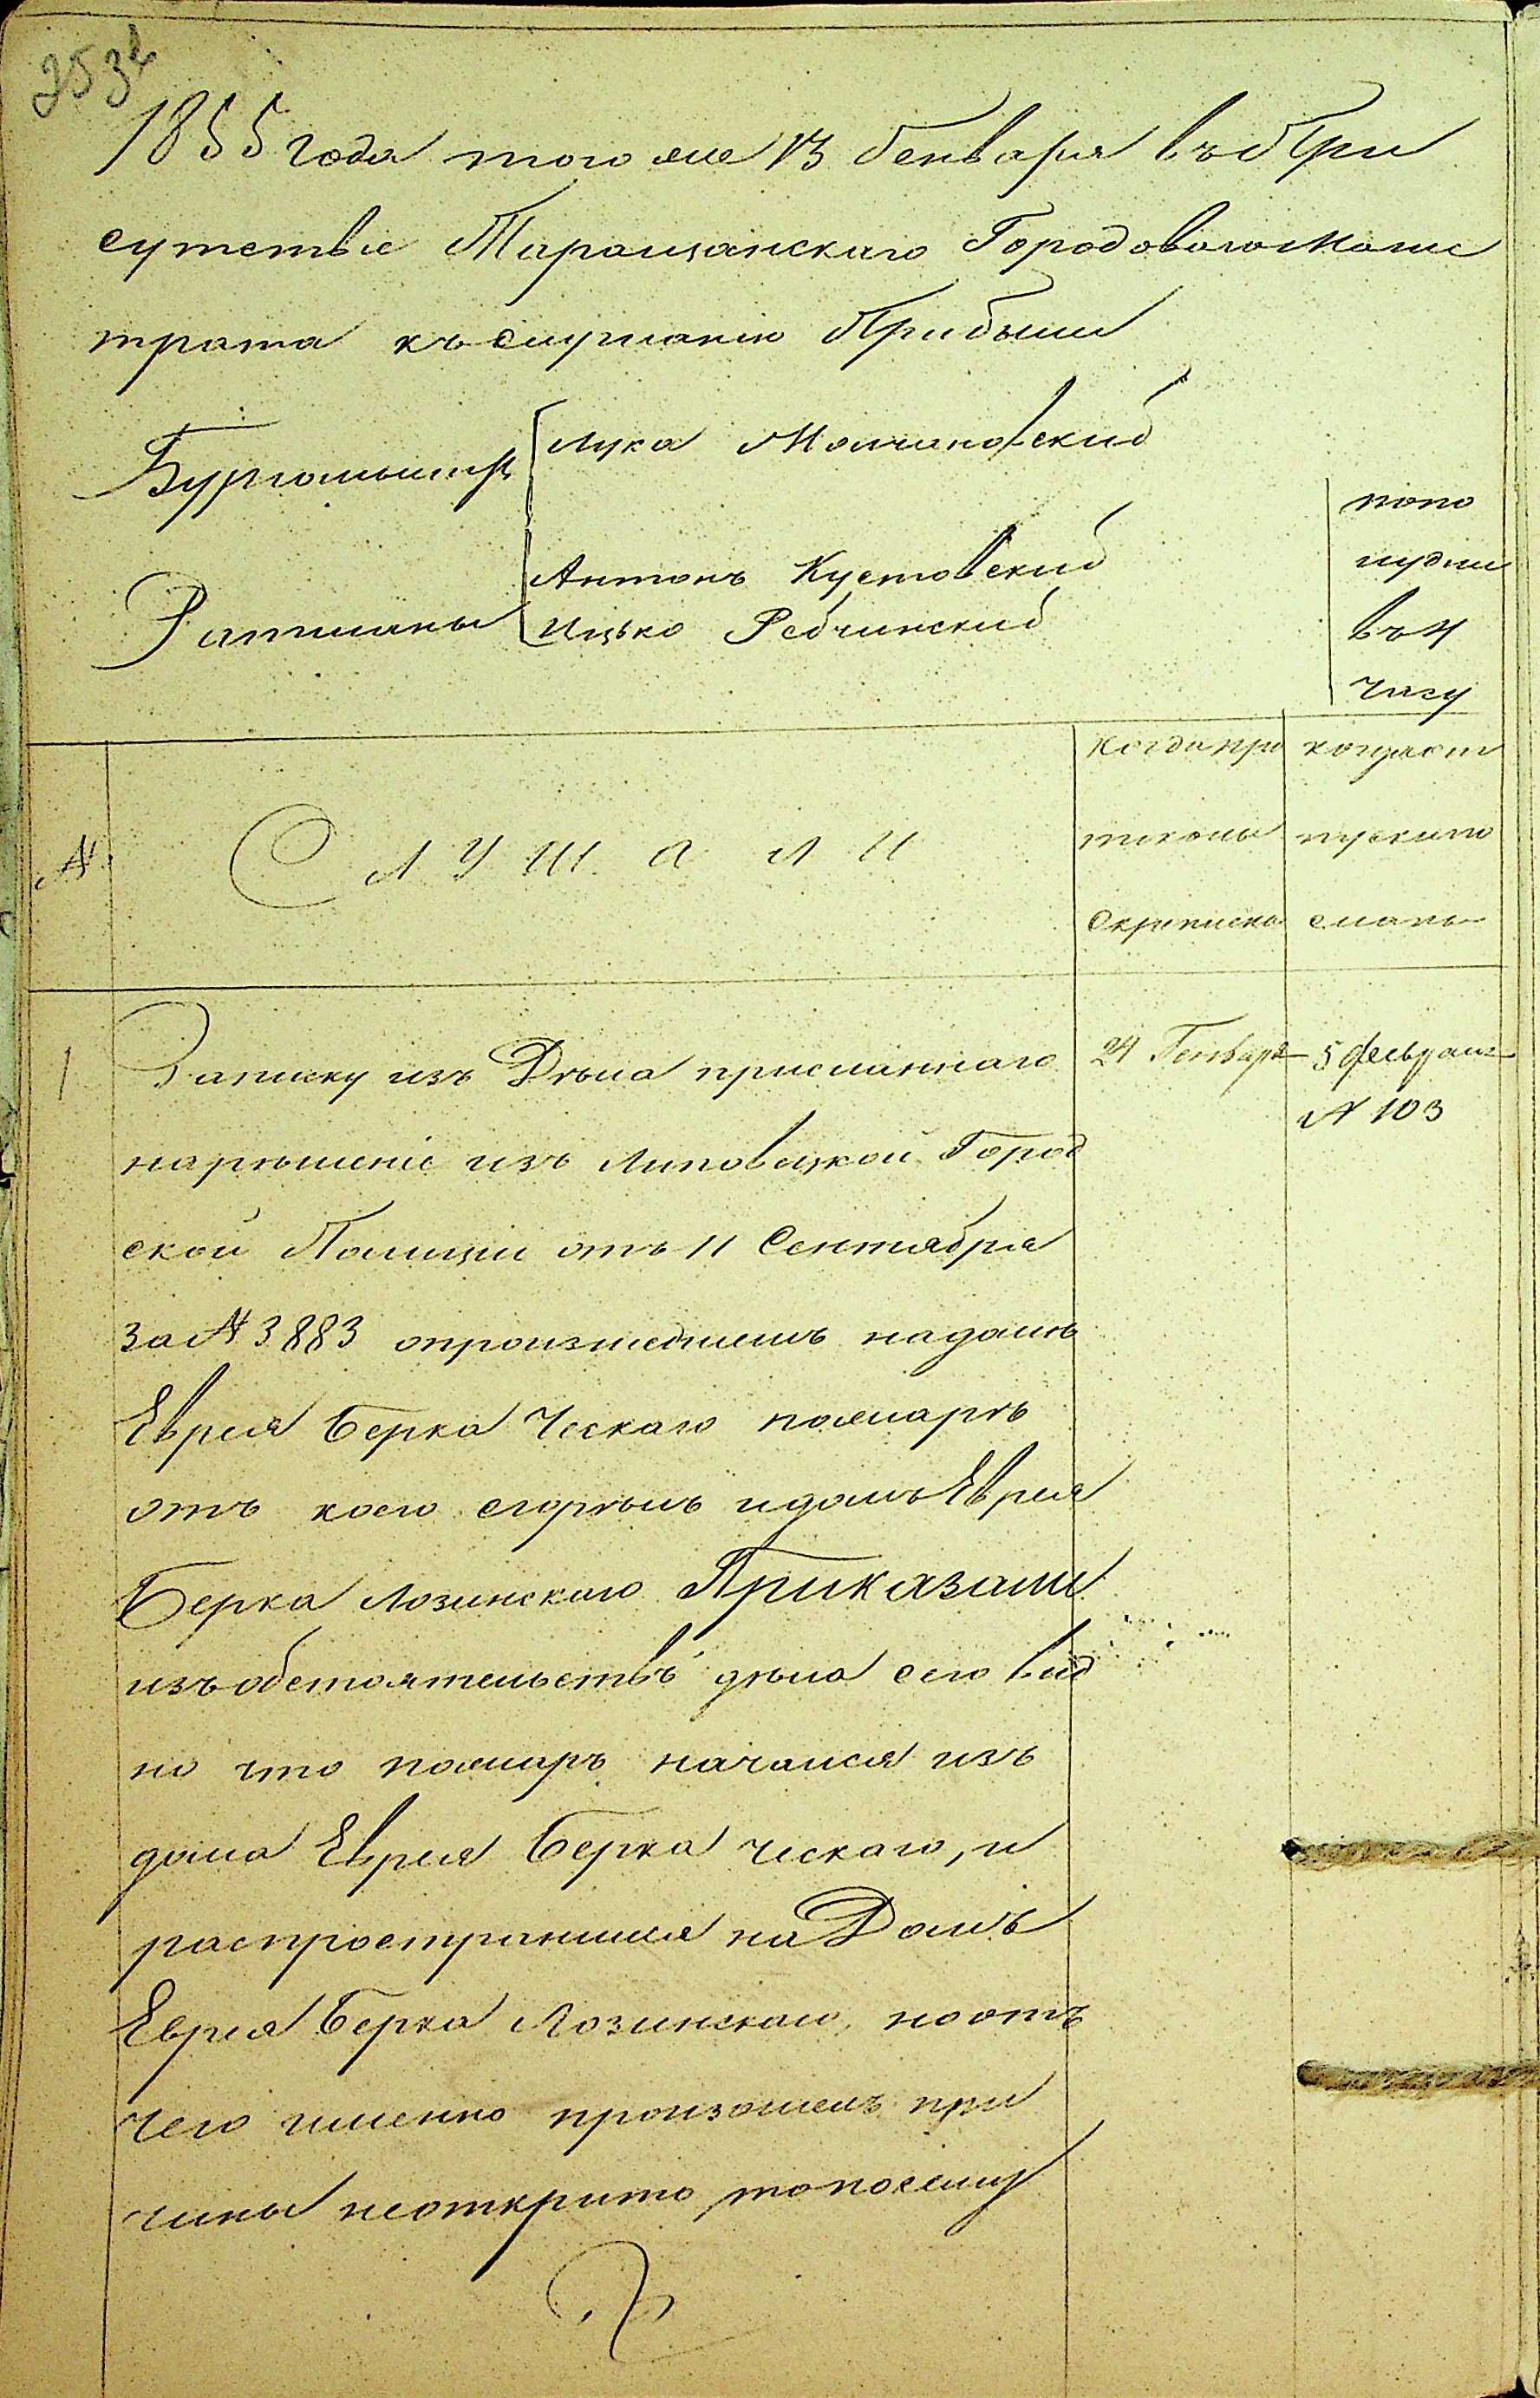 253
1855 года того же 13 Генваря въ при
сутствіе Таращанскаго Городоваго Магис
трата къ слушанію Прибыли
Бургомистръ Лука Молчановскій
Антонъ Кустовскій
Ратманы Ицько Ребчинскій
попо
лудни
въ 4
часу
№
Слушали
Когда при
ложены
Скрепленъ
когда от
пускъ по
сланъ
1
Записку изъ Дѣла присланнаго
нарѣшеніе изъ Липовецкой Город
ской Полиціи отъ 11 Сентября
за № 3883 опроизшедшемъ надомъ
Еврея Берка Ческаго пожарѣ
отъ коего сгорѣлъ идомъ Еврея
Берка Лозинскаго Приказали
изъ обстоятельствъ дѣла сего вид
но что пожаръ начался изъ
дома Еврея Берка Ческаго, и
распространился на Домъ
Еврея Берка Лозинскаго, но отъ
чего именно произошелъ при
чины неоткрито, то посему
24 Генваря
5 февраля
№ 103